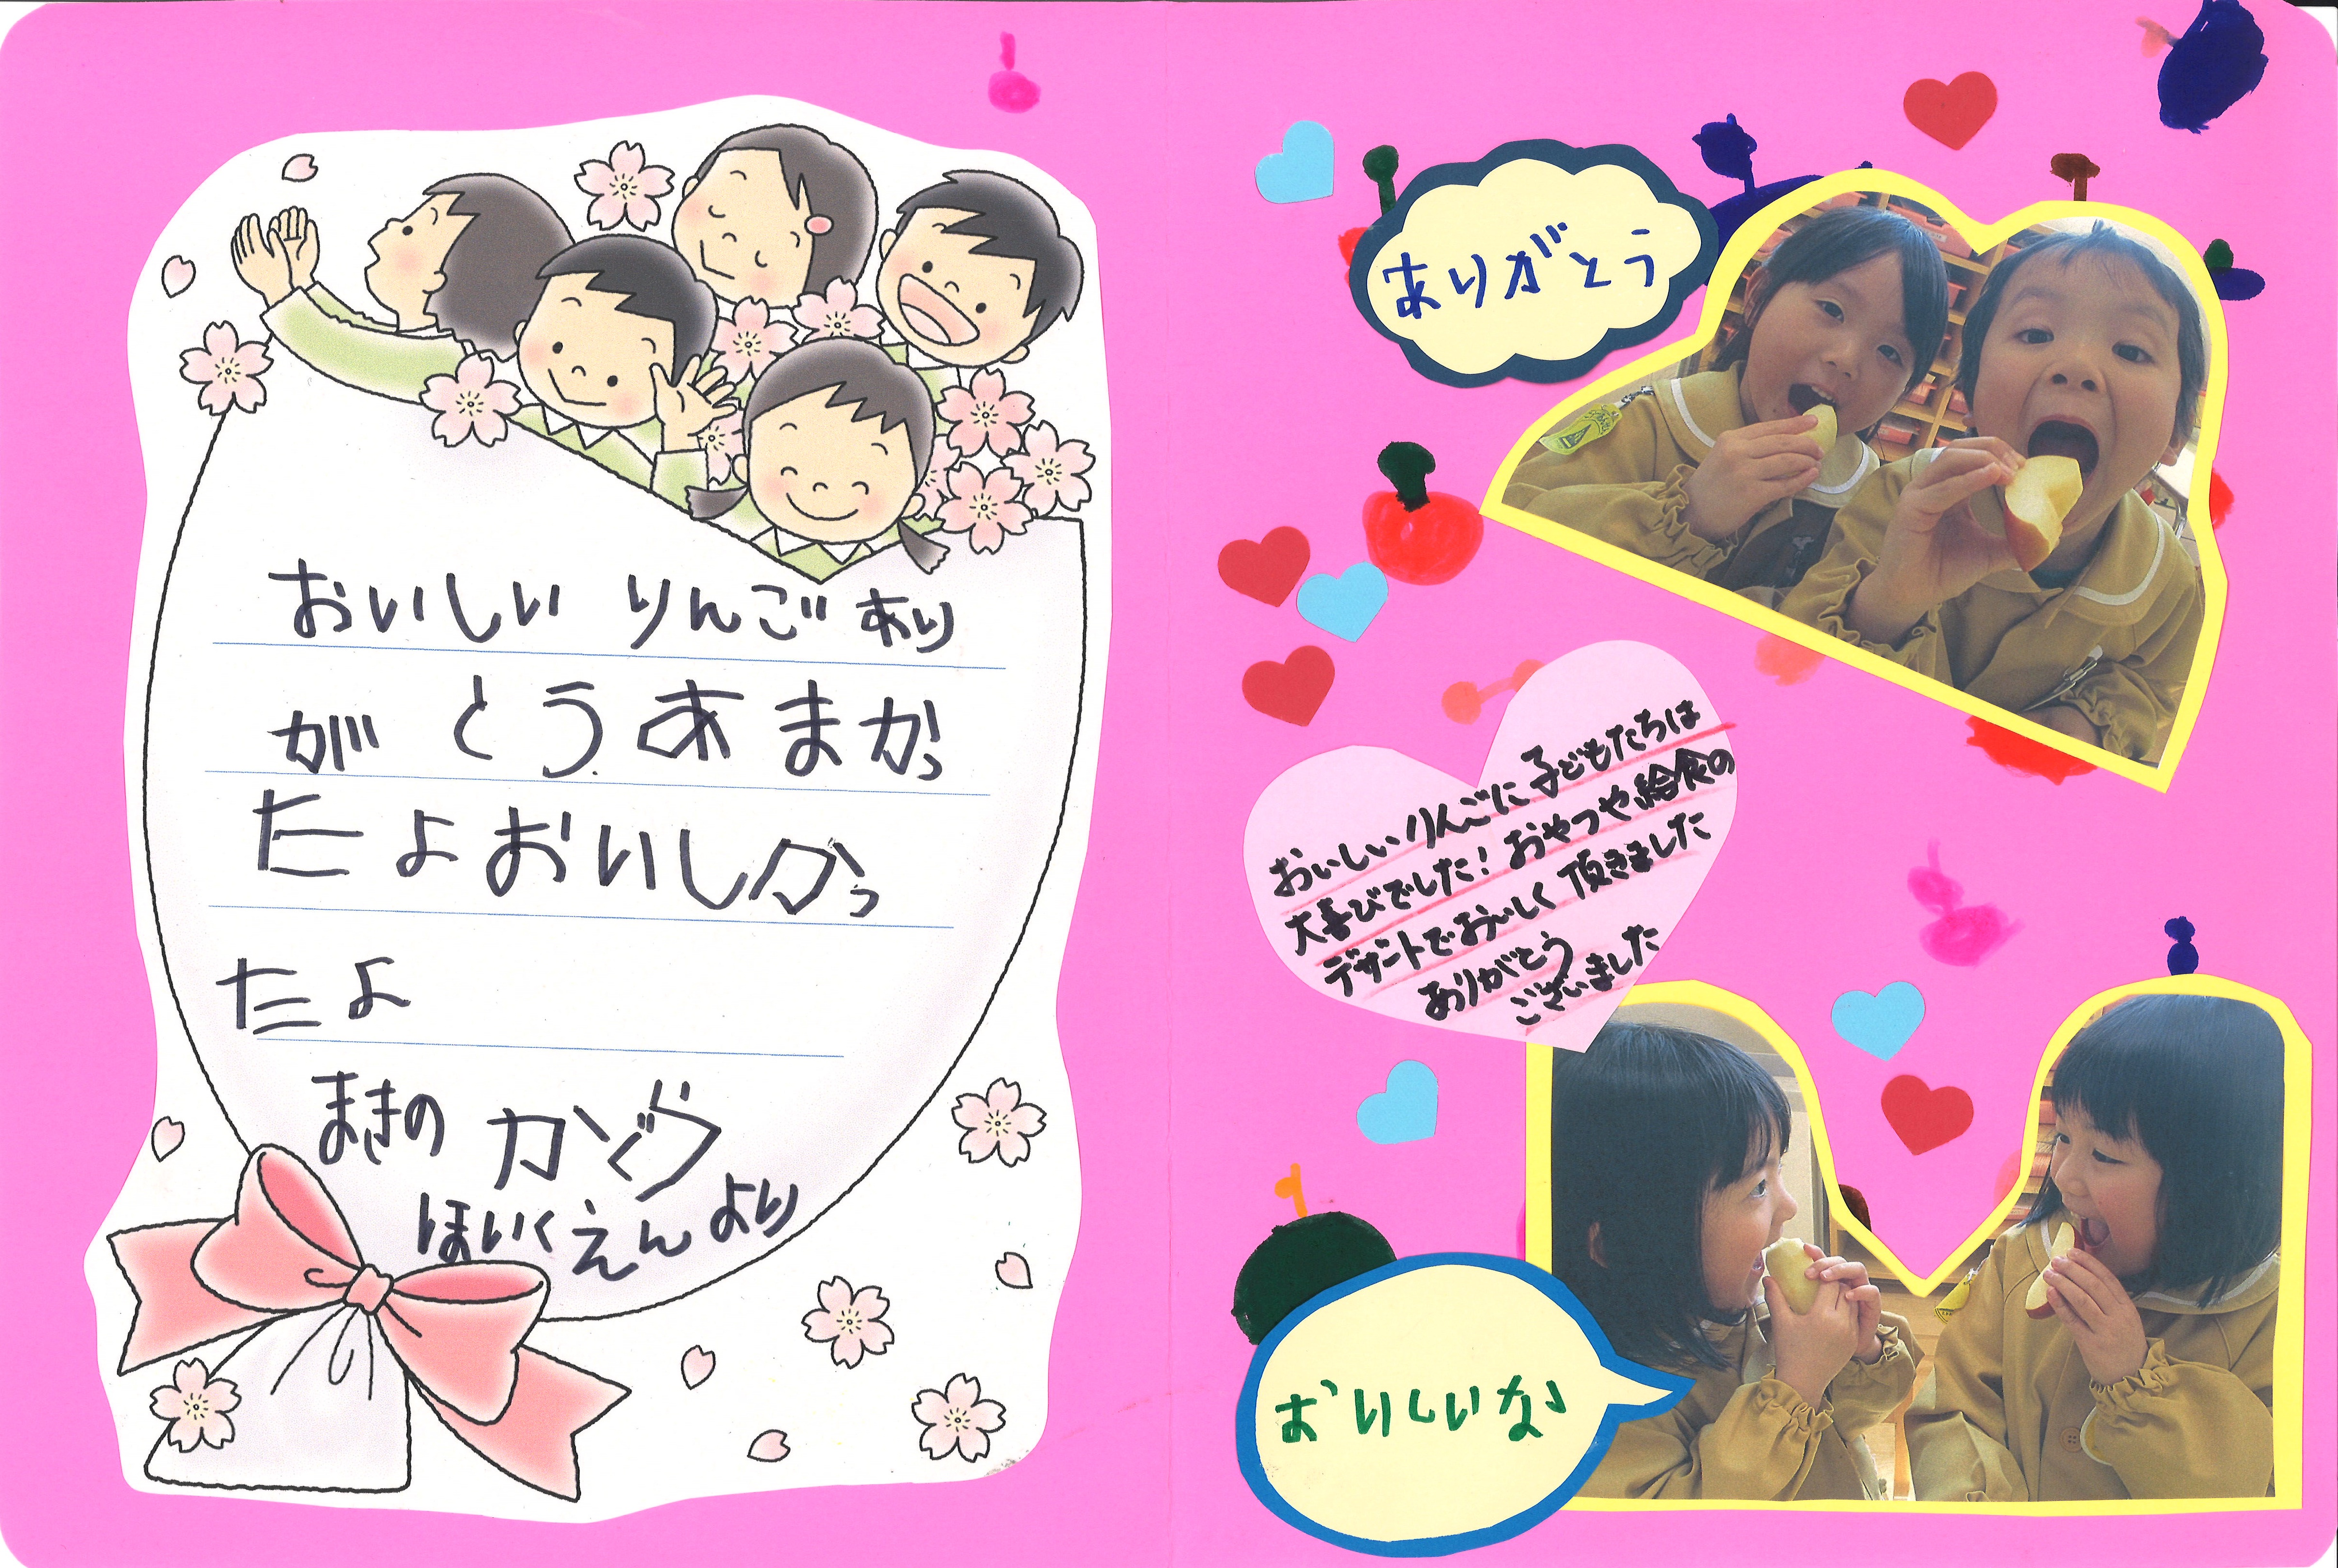 おいしい りんご あり
が とう あ ま かっ
たよおいしかっ
たよ
まきの かぐら
ほいくえん より
ありがとう
おいしいりんごに子どもたちは
大喜びでした!おやつや給食の
デザートでおいしく頂きました
ありがとう
ございました
おいしいな